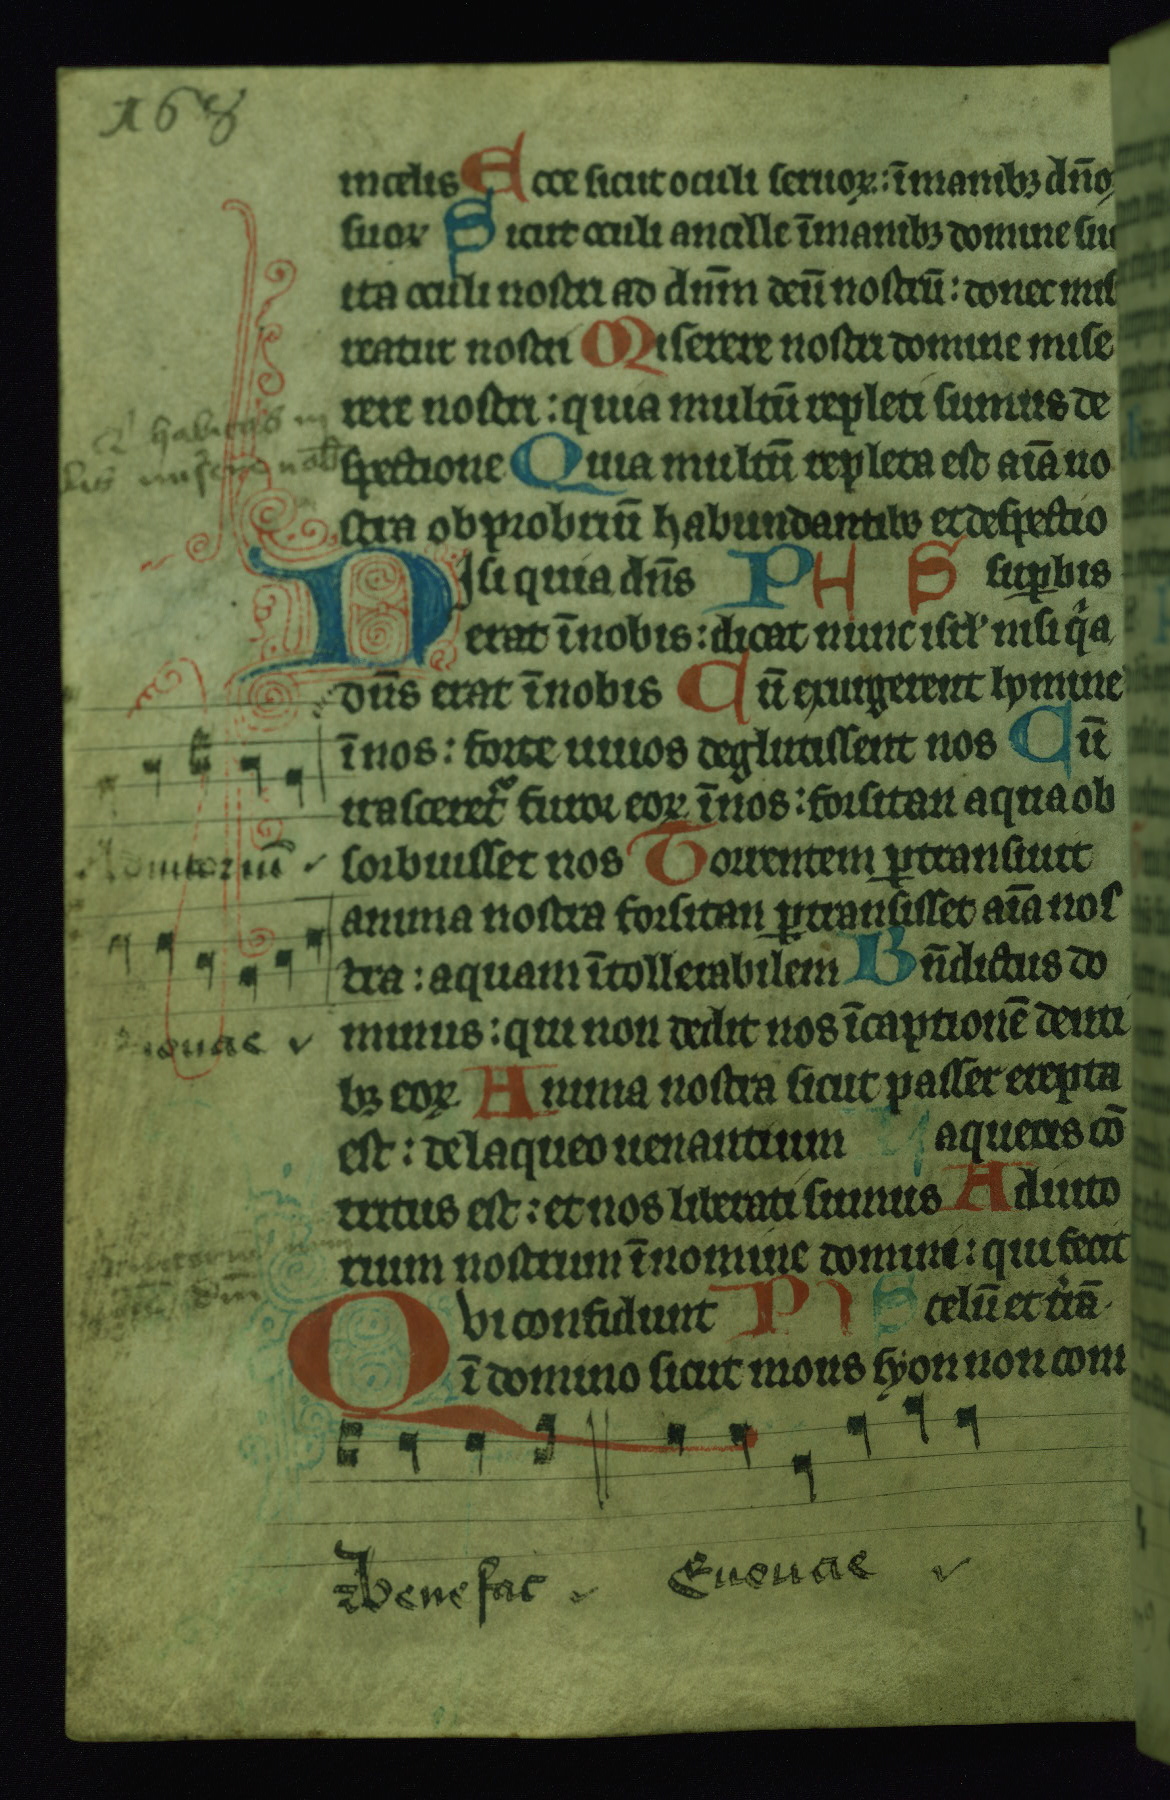 168
in celis Ecce sicut oculi seruoꝝ: ī manibꝫ dn̄o
suoꝝ Sicut oculi ancille ī manibꝫ domine su
ita oculi nostri ad dūm deū nostrū: donec mis
reatur nostri Miserere nostri domine mise
rere nostri: quia multū repleti sumus de
spectione Quia multū repleta est aīa no
stra obprobriū habundantibꝫ et despectio
Nisi quia dn̄s PS suꝑbis
erat ī nobis: dicat nunc isrl' nisi qͥa
dūs erat ī nobis Cū exurgerent homine
ī nos: forte uiuos deglutissent nos Cū
irasceret᷑ furor eoꝝ ī nos: forsitan aqua ob
sorbuisset nos Torrentem ꝑtransiuit
anima nostra forsitan ꝑtransisset aīa nos
tra: aquam ītollerabilem Bn̄dictus do
minus: qui non dedit nos ī captionē denti
bꝫ eoꝝ Anima nostra sicut passer erepta
est: de laqueo uenantium Laqueus cō
tritus est: et nos liberati sumus Adiuto
rium nostrum ī nomine domini: qui fecit
Qui confidunt PS celū et t̓rā
ī domino sicut mons syon non com
habitas in
lis misere nob
Adiutoriū
euouae
dūm
Benefac Euouae